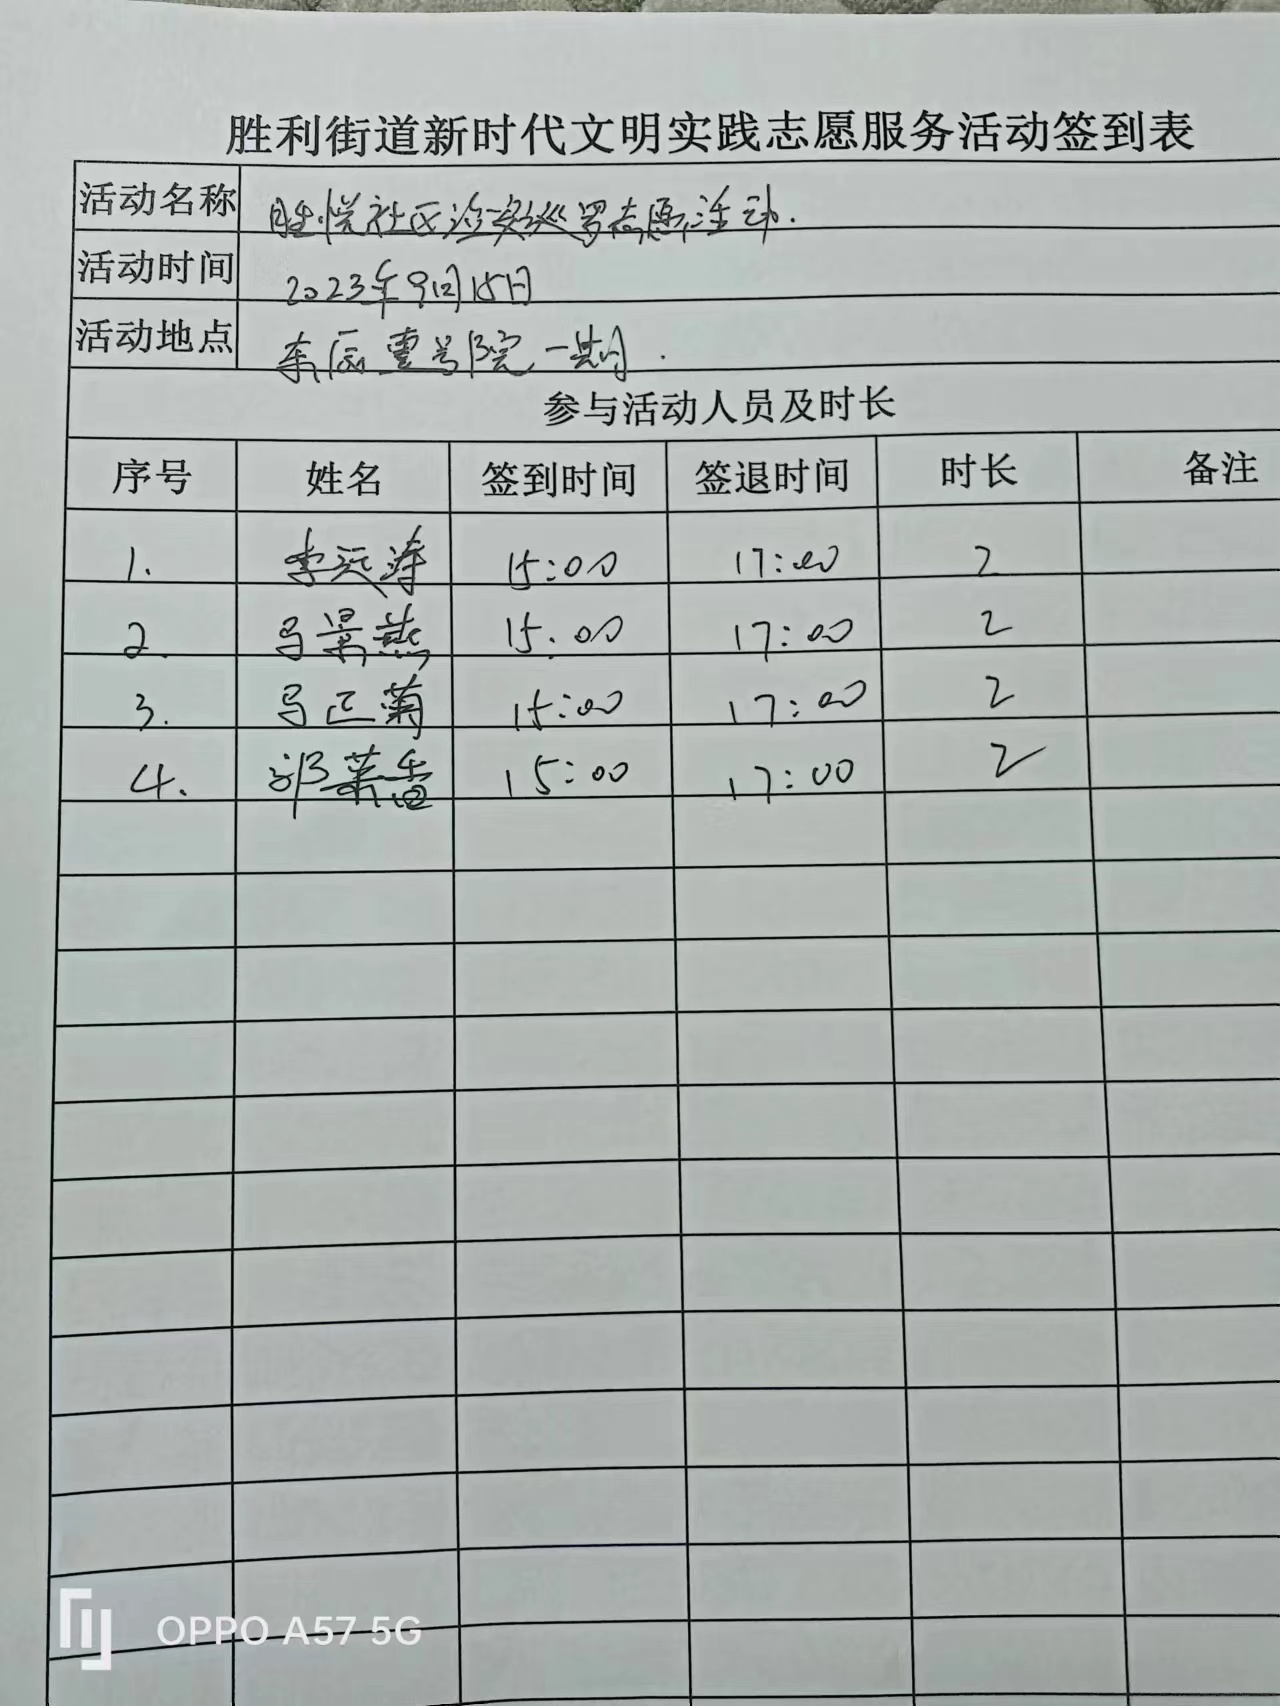 胜利街道新时代文明实践志愿服务活动签到表
活动名称 胜悦社区治安巡逻志愿活动.
活动时间 2023年9月15日
活动地点 东辰壹号院一期.
参与活动人员及时长
序号 姓名 签到时间 签退时间 时长 备注
1. 李沃涛 15:00 17:00 2
2. 马景燕 15:00 17:00 2
3. 马正菊 15:00 17:00 2
4. 15:00 17:00 2
OPPO A57 5G